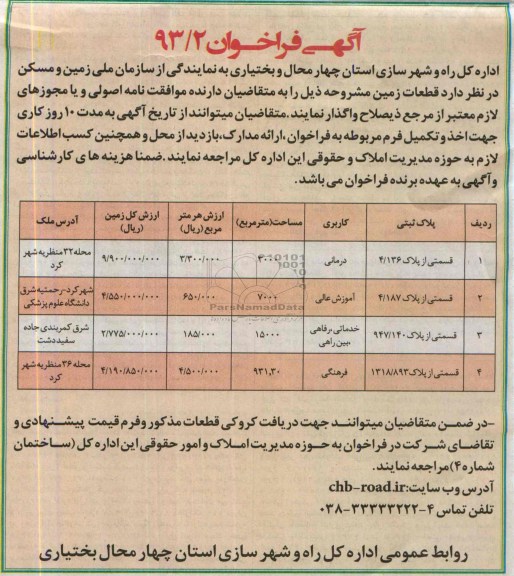 آگهی فراخوان ۹۳/۲
اداره کل راه و شهر سازی استان چهار محال و بختیاری به نمایندگی از سازمان ملی زمین و مسکن
در نظر دارد قطعات زمین مشروحه ذیل را به متقاضیان دارنده موافقت نامه اصولی و یا مجوزهای
لازم معتبر از مرجع ذیصلاح واگذار نمایند.متقاضیان میتوانند از تاریخ آگهی به مدت ۱۰ روز کاری
جهت اخذ و تکمیل فرم مربوطه به فراخوان ،ارائه مدارک،بازدید از محل و همچنین کسب اطلاعات
لازم به حوزه مدیریت املاک و حقوقی این اداره کل مراجعه نمایند.ضمنا هزینه های کارشناسی
و آگهی به عهده برنده فراخوان می باشد.
ردیف پلاک ثبتی کاربری مساحت(مترمربع) ارزش هر متر مربع(ریال) ارزش کل زمین (ریال) آدرس ملک
۱ قسمتی از پلاک ۴/۱۳۶ درمانی ۳۰۰۰ ۳/۳۰۰/۰۰۰ ۹/۹۰۰/۰۰۰/۰۰۰ محله ۳۲ منظریه شهر کرد
۲ قسمتی از پلاک ۴/۱۸۷ آموزش عالی ۷۰۰۰ ۶۵۰/۰۰۰ ۴/۵۵۰/۰۰۰/۰۰۰ شهرکرد-رحمتیه شرق دانشگاه علوم پزشکی
۳ قسمتی از پلاک ۹۴۷/۱۴۰ خدماتی،رفاهی ،بین راهی ۱۵۰۰۰ ۱۸۵/۰۰۰ ۲/۷۷۵/۰۰۰/۰۰۰ شرق کمربندی جاده سفیددشت
۴ قسمتی از پلاک ۱۳۱۸/۸۹۳ فرهنگی ۹۳۱,۳۰ ۴/۵۰۰/۰۰۰ ۴/۱۹۰/۸۵۰/۰۰۰ محله ۳۶ منظریه شهر کرد
ParsNamadData
-در ضمن متقاضیان میتوانند جهت دریافت کروکی قطعات مذکور و فرم قیمت پیشنهادی و
تقاضای شرکت در فراخوان به حوزه مدیریت املاک و امور حقوقی این اداره کل (ساختمان
شماره ۴)مراجعه نمایند.
آدرس وب سایت:chb-road.ir
تلفن تماس ۴-۳۳۳۳۳۲۲۲-۰۳۸
روابط عمومی اداره کل راه و شهر سازی استان چهار محال بختیاری